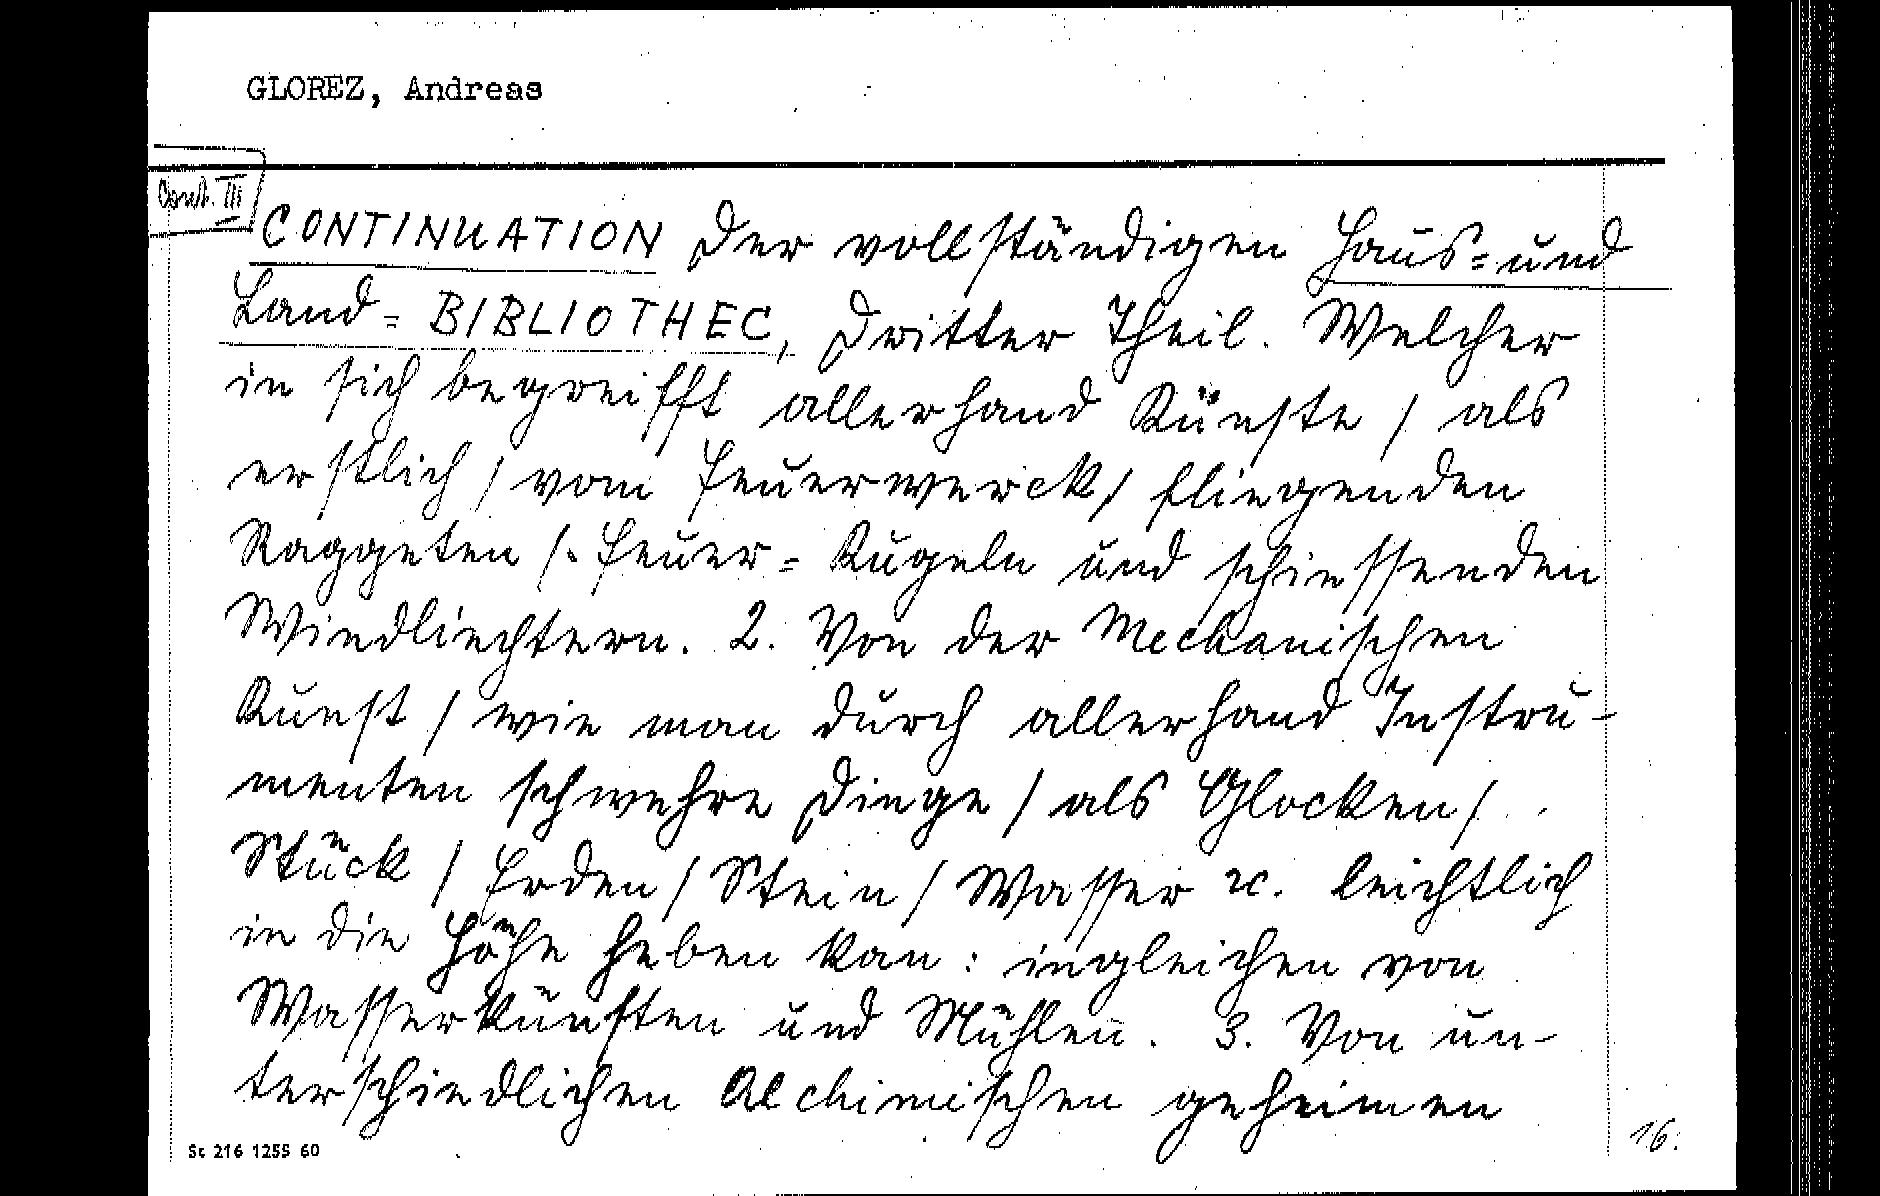 GLOREZ, Andreas
Cont. III
CONTINUATION Der vollständigen Haus= und
Land= BIBLIOTHEC, Dritter Theil. Welcher
in sich begreifft allerhand Künste / als
erstlich / vom Feuerwerck / fliegenden
Raggeten / Feuer= Kugeln und schiessenden
Windliechtern. 2. Von der Mechanischen
Kunst / wie man durch allerhand Instru-
menten schwehre Dinge / als Glocken /
Stück / Erden / Stein / Wasser ꝛc. leichtlich
in die Höhe heben kan: ingleichen von
Wasserkünsten und Mühlen. 3. Von un-
terschiedlichen Alchimischen geheimen
St 216 1255 60
16.